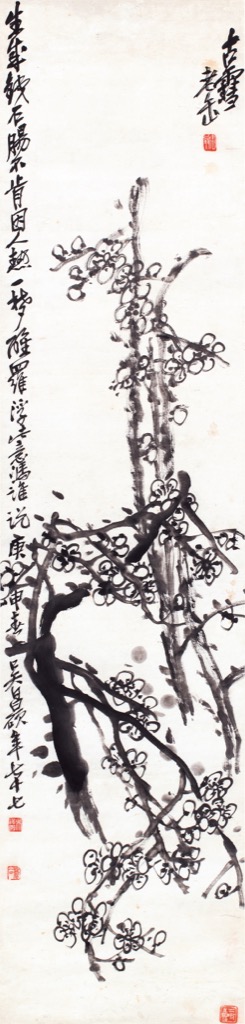 古雪
老缶
生成鐵石腸不肯因人熱一夢醒羅浮此意憑誰說庚申春吳昌碩年七十七